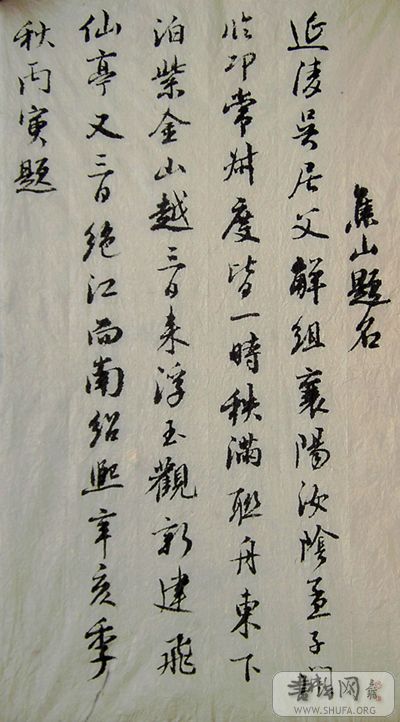 焦山題名
延陵吳居父解組襄陽汝陰孟子
臨邛常叔度皆一時秩滿聯舟東下
泊紫金山越三日來浮玉觀新建飛
仙亭又三日絕江而南紹熙辛亥季
秋丙寅題
書法网
WWW.SHUFA.ORG